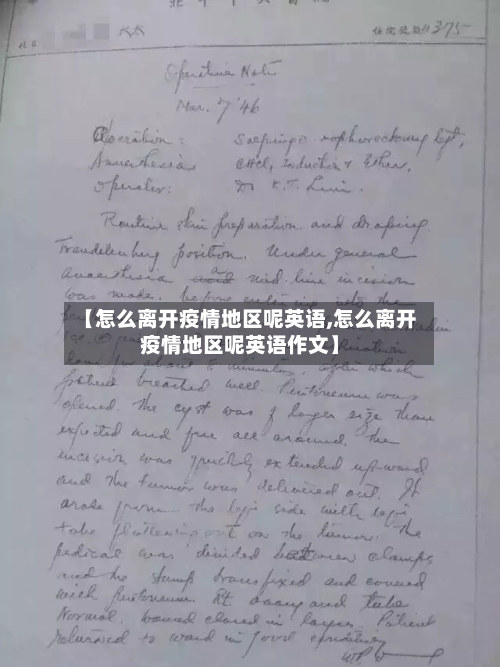 太太 住院號數 11375
Operative Note
Mar. 7 '46
Operation: Salpingo-oophorectomy left,
Anaesthesia CHCl, Induction & Ether,
Operator: Dr K.T.
Routine skin preparation and draping
Trendelenburg position. Under general
anaesthesia mid-line incision
was made. Before entering into the
【怎么离开疫情地区呢英语,怎么离开
疫情地区呢英语作文】
for about 6 minutes, after which
patient breathed well. Peritoneum was
opened. The cyst was of larger size than
expected and free all around. The
incision was quickly extended upward
and the tumor was delivered out. It
arose from the left side with left
tube flattening out on the tumor. The
pedicle was divided between clamps
and the stump transfixed and covered
with peritoneum Rt ovary and tube
Normal. Wound closed in layers. Patient
returned to ward in good condition